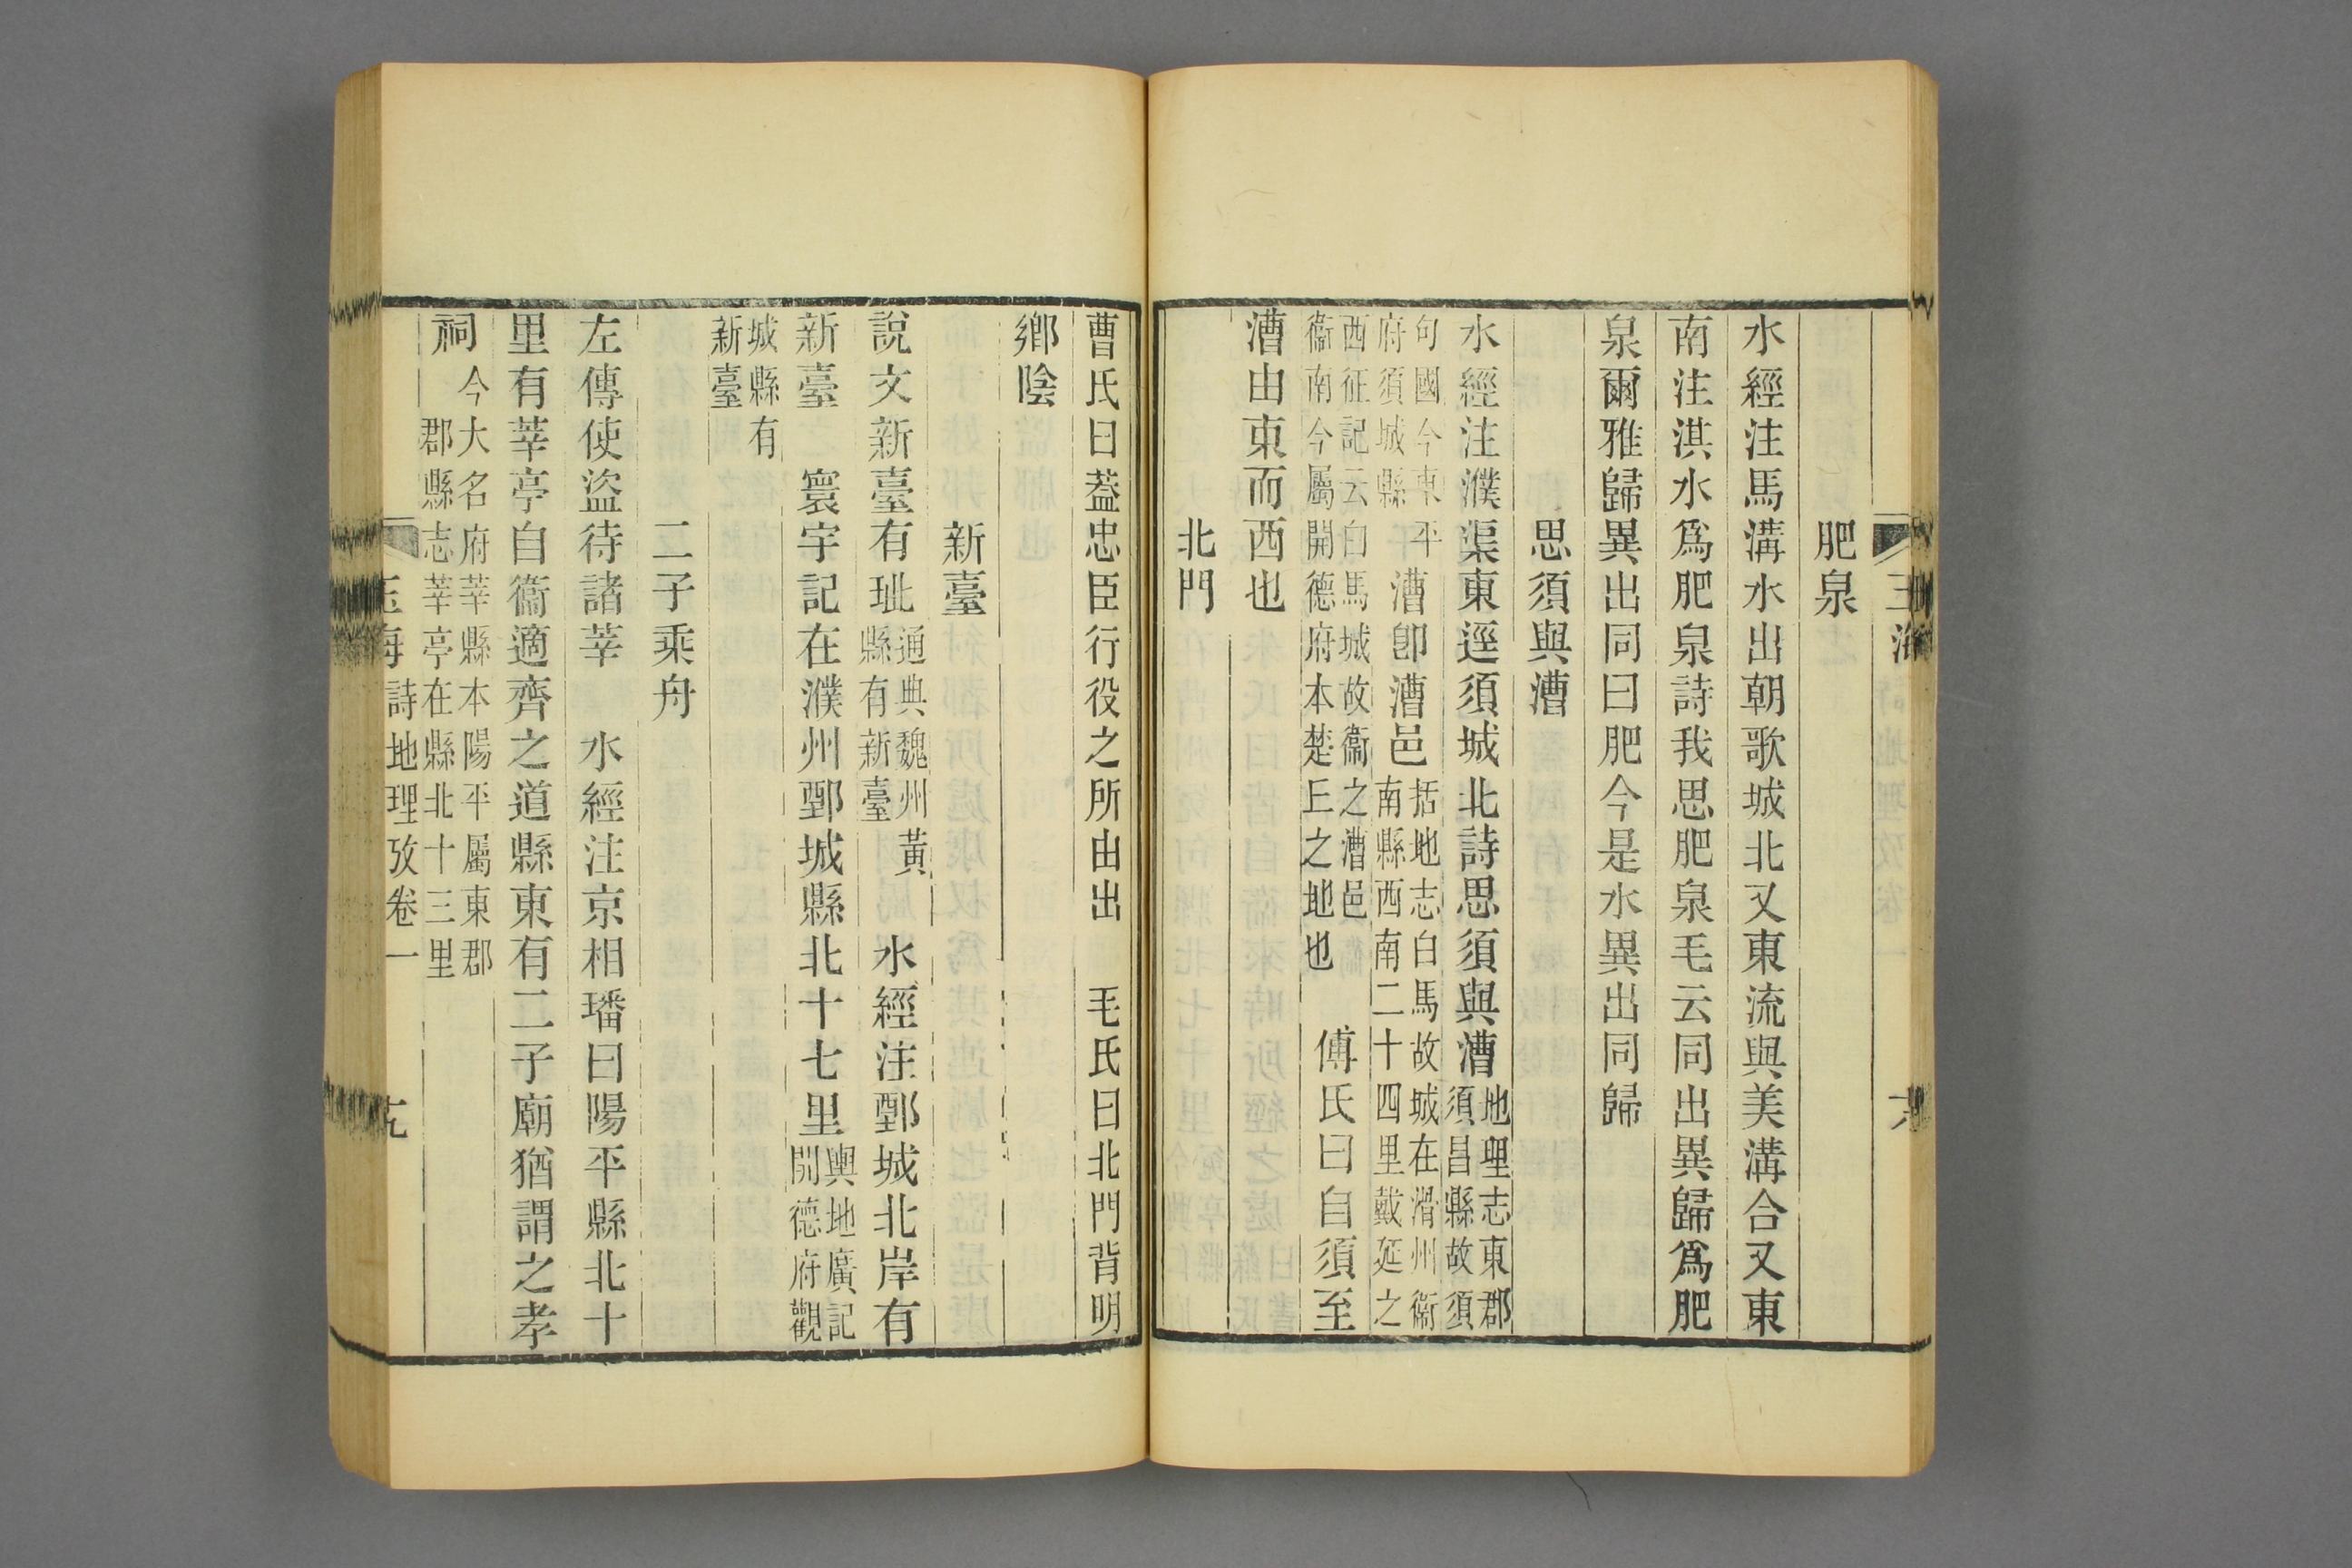 肥泉
水經注馬溝水出朝歌城北又東流與美溝合又東
南注淇水爲肥泉詩我思肥泉毛云同出異歸爲肥
泉爾雅歸異出同曰肥今是水異出同歸
思須與漕
水經注濮渠東逕須城北詩思須與漕地理志東郡須昌縣故須
句國今東平府須城縣漕卽漕邑括地志白馬故城在滑州衞南縣西南二十四里戴延之
西征記云白馬城故衞之漕邑衞南今屬開德府本楚丘之地也 傅氏曰自須至
漕由東而西也
北門
曹氏曰葢忠臣行役之所由出 毛氏曰北門背明
鄉陰
新臺
說文新臺有玼通典魏州黃縣有新臺 水經注鄄城北岸有
新臺 寰宇記在濮州鄄城縣北十七里輿地廣記開德府觀
城縣有新臺
二子乘舟
左傳使盜待諸莘 水經注京相璠曰陽平縣北十
里有莘亭自衞適齊之道縣東有二子廟猶謂之孝
祠今大名府莘縣本陽平屬東郡郡縣志莘亭在縣北十三里
詩地理攷卷一